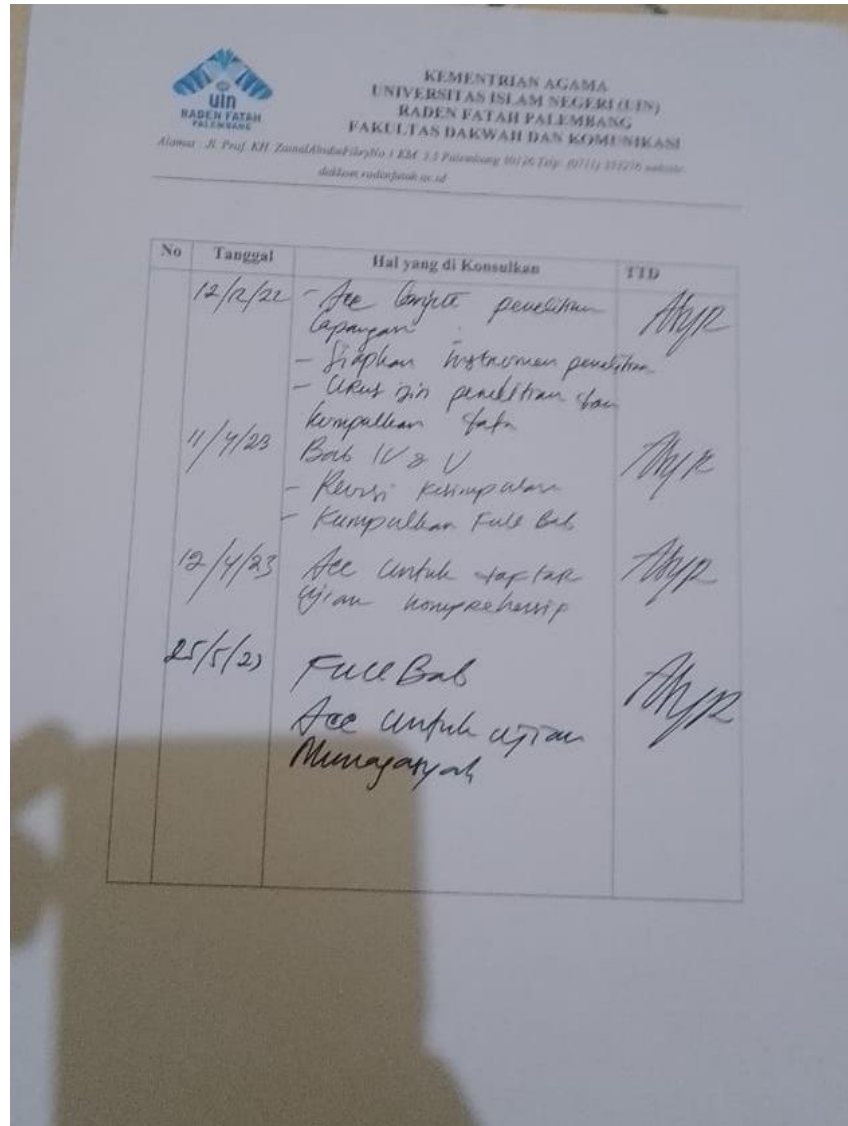 uin
RADEN FATAH
PALEMBANG
KEMENTRIAN AGAMA
UNIVERSITAS ISLAM NEGERI (UIN)
RADEN FATAH PALEMBANG
FAKULTAS DAKWAH DAN KOMUNIKASI
Alamat : Jl. Prof. KH. Zainal No. 1 KM. 3.5 Palembang 30126 Telp. (0711) website
No Tanggal Hal yang di Konsulkan TTD
12/12/22 - Acc penelitian
Lapangan
- Siapkan Instrumen penelitian
- Urus izin penelitian dan
kumpulkan data
11/4/23 Bab IV & V
- Revisi kesimpulan
- Kumpulkan Full Bab
12/4/23 Acc untuk daftar
ujian komprehensip
25/5/23 Full Bab
Acc untuk ujian
Munaqasyah